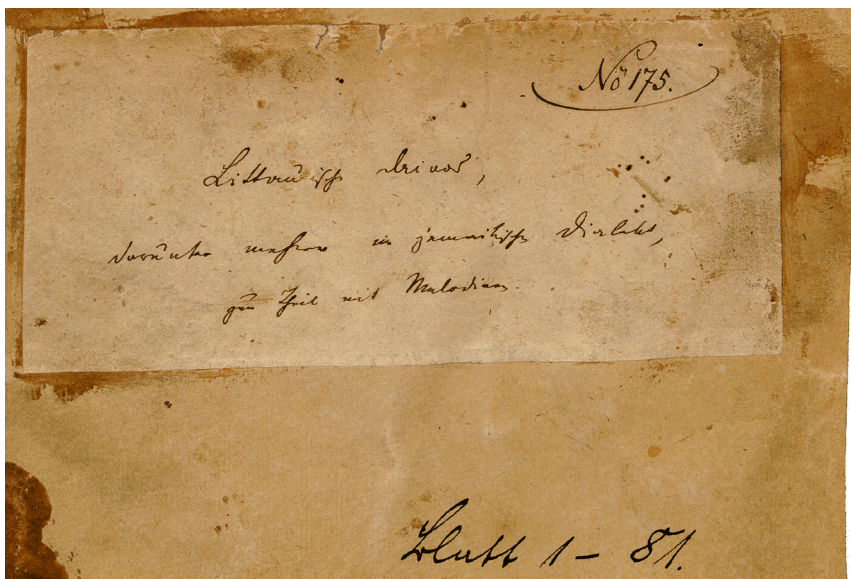 No 175.
Littauische Dainos,
darunter mehrere in żemaitischem Dialekt,
zum Theil mit Melodien.
Blatt 1 – 81.